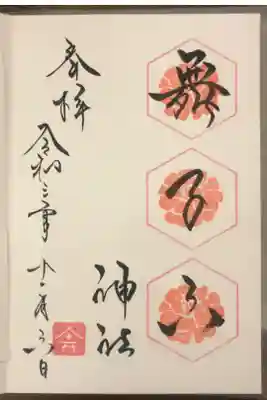 舞子六
神社
奉拝
令和三年十一月六日